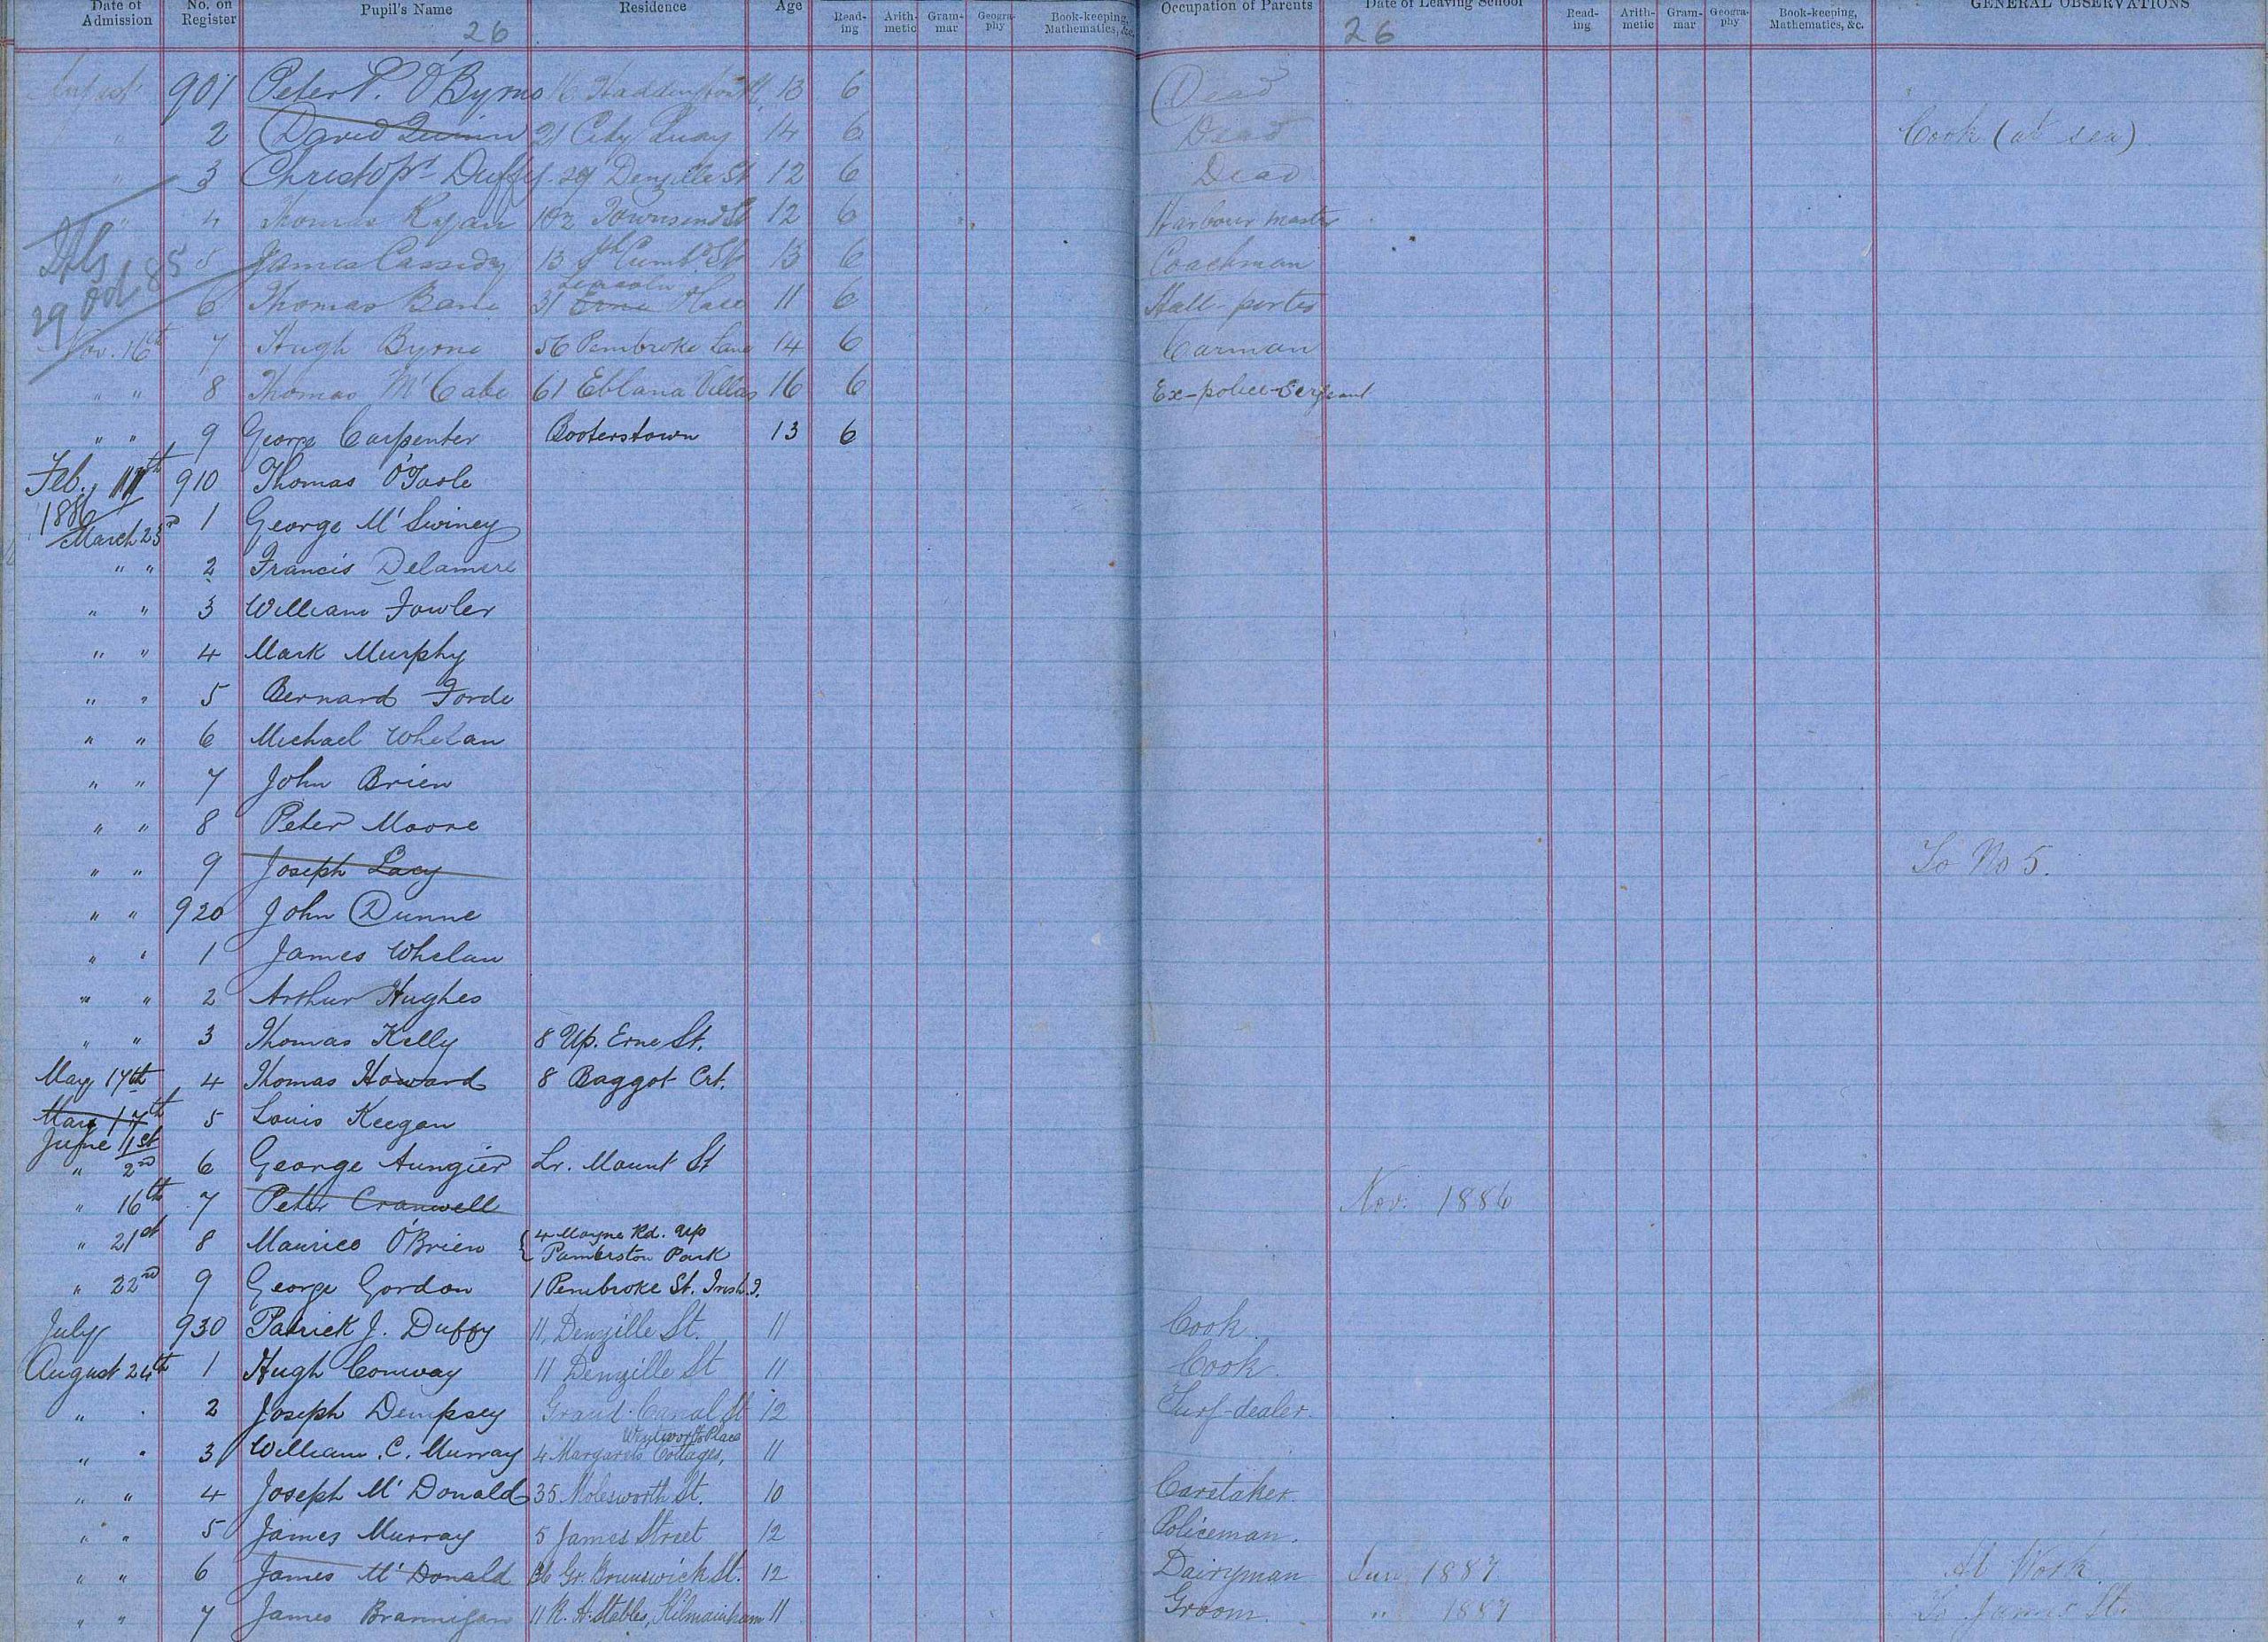 Date of Admission No. on Register Pupil's Name Residence Age Read-ing Arith-metic Gram-mar Geogra-phy Book-keeping, Mathematics, &c. Occupation of Parents Date of Leaving School Read-ing Arith-metic Gram-mar Geogra-phy Book-keeping, Mathematics, &c. GENERAL OBSERVATIONS
26 26
901 Peter P. O'Byrne 16 Haddington 13 6 Dead
" 2 David Quinn 21 City Quay 14 6 Dead Cook (at sea)
" 3 Christopr Duffy 29 Denzille St 12 6 Dead
" 4 Thomas Ryan 192 Townsend St 12 6 Harbour master
29 Oct 85
5 James Cassidy 13 Cumbd. St 13 6 Coachman
6 Thomas Bane 31 Erne Lincoln Place 11 6 Hall-porter
Nov. 16th 7 Hugh Byrne 56 Pembroke Lane 14 6 Carman
" " 8 Thomas M'Cabe 61 Eblana Villas 16 6 Ex-police-Sergeant
" " 9 George Carpenter Booterstown 13 6
Feb. 11th 910 Thomas O'Toole
1886
March 23rd 1 George M'Swiney
" " 2 Francis Delamere
" " 3 William Fowler
" " 4 Mark Murphy
" " 5 Bernard Forde
" " 6 Michael Whelan
" " 7 John Brien
" " 8 Peter Moore
" " 9 Joseph Lacy To No 5.
" " 920 John Dunne
" " 1 James Whelan
" " 2 Arthur Hughes
" " 3 Thomas Kelly 8 Up. Erne St.
May 17th 4 Thomas Howard 8 Baggot Crt.
May 17th 5 Louis Keegan
June 1st
" 2nd 6 George Aungier Lr. Mount St
" 16th 7 Peter Cranwell Nov. 1886
" 21st 8 Maurice O'Brien 4 Mayne Rd. Up
Pamerston Park
" 22nd 9 George Gordon 1 Pembroke St. Irish.
July 930 Patrick J. Duffy 11, Denzille St. 11 Cook.
August 24th 1 Hugh Conway 11 Denzille St 11 Cook.
" " 2 Joseph Dempsey Grand Canal St 12 Turf-dealer.
Wentworth Place
" " 3 William C. Murray 4 Margarets Cottages, 11
" " 4 Joseph M'Donald 35 Molesworth St. 10 Caretaker.
" " 5 James Murray 5 James Street 12 Policeman.
" " 6 James M'Donald 36 Gr. Brunswick St. 12 Dairyman 1887 At Work
" " 7 James Brannigan 11 R. H. Stables, Kilmainham 11 Groom. " 1887 To James St.